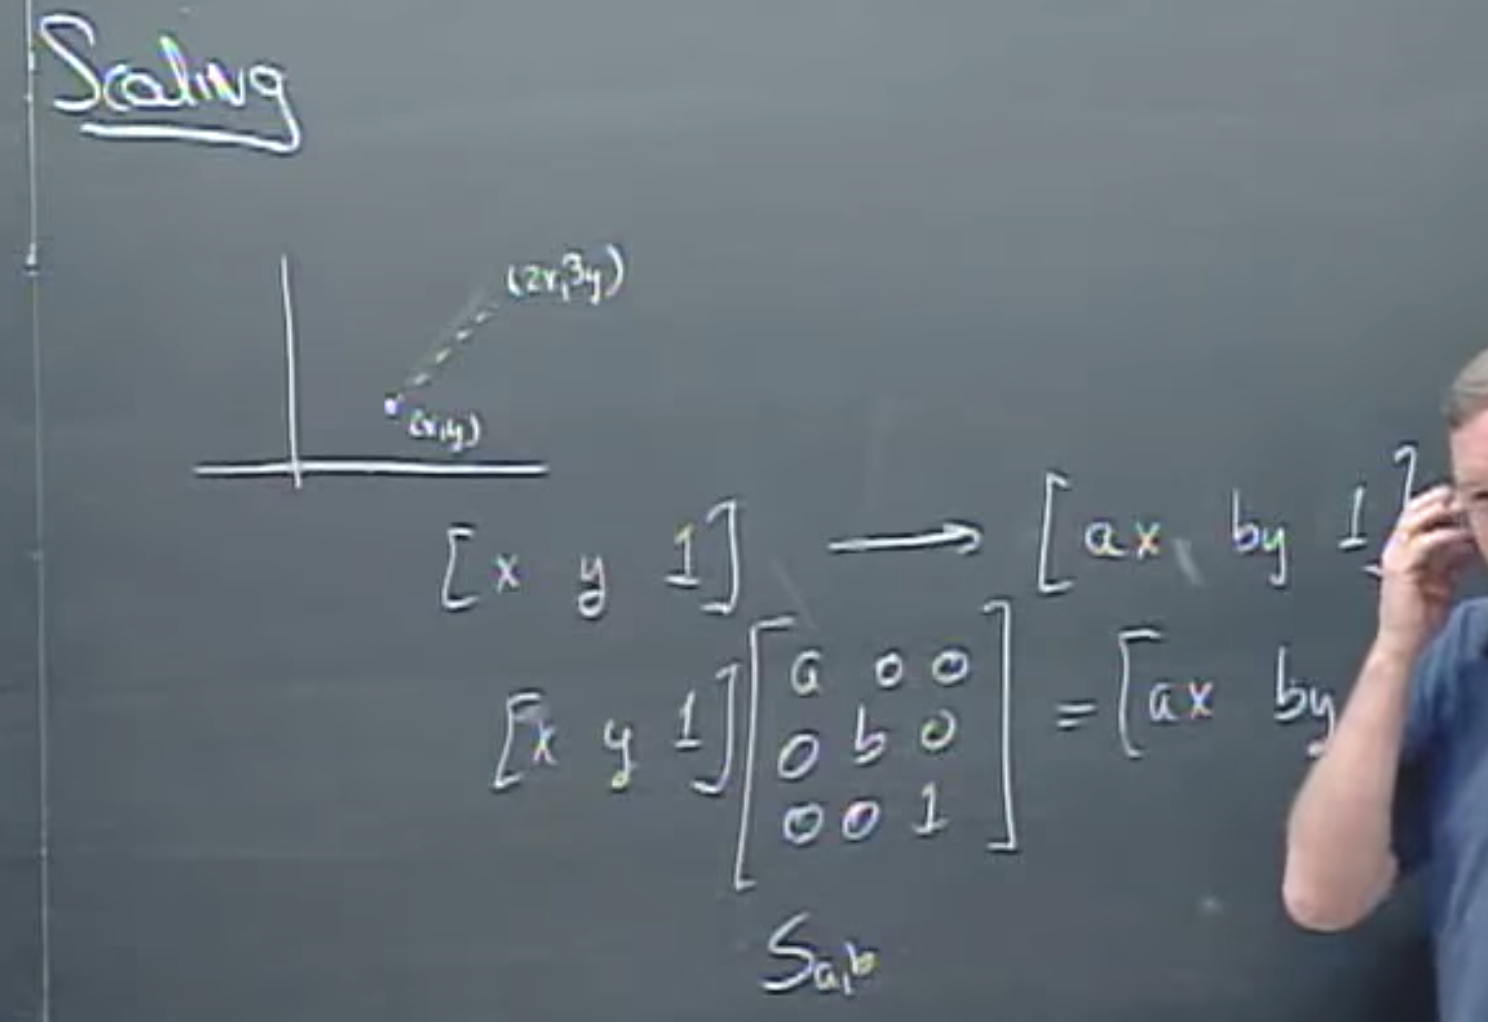 Scaling
(2x,3y)
(x,y)
[x y 1] → [ax by 1]
[x y 1] [a 0 0
0 b 0
0 0 1] = [ax by
Sa,b